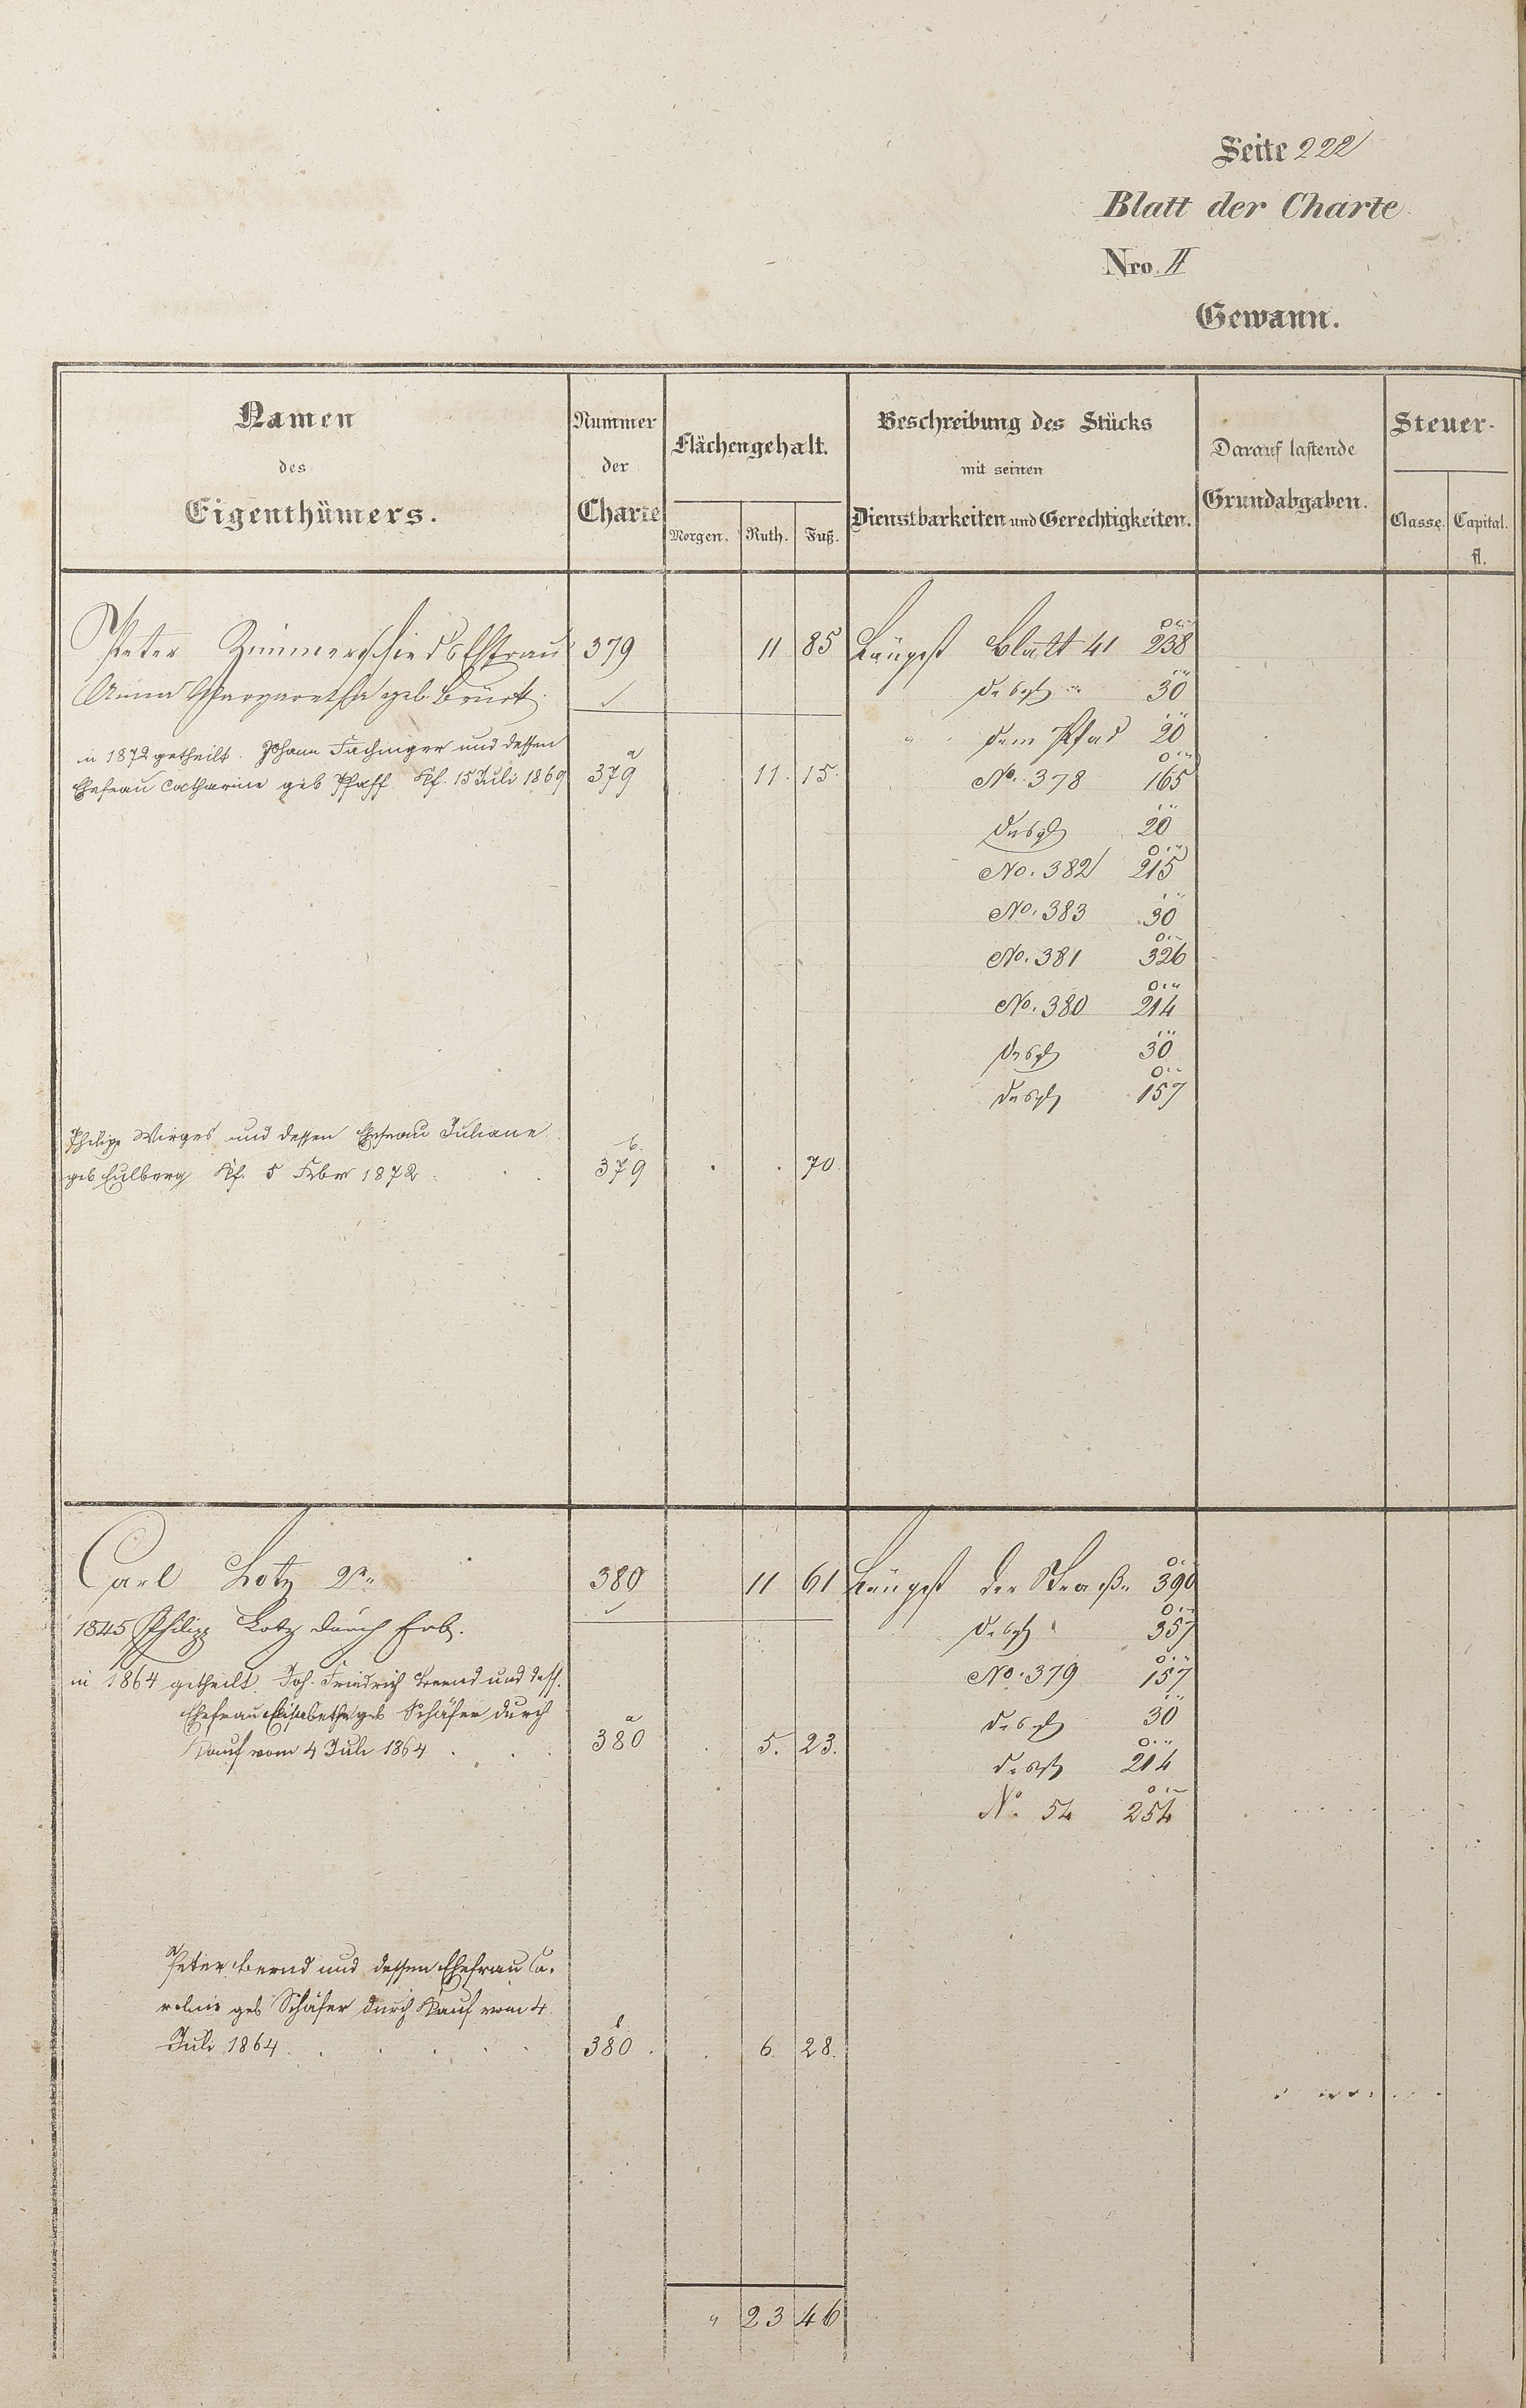 Seite 222
Blatt der Charte
Nro. II
Gewann.
Namen
des
Eigenthümers.
Nummer
der
Charte
Flächengehalt.
Morgen. Ruth. Fuß.
Beschreibung des Stücks
mit seinen
Dienstbarkeiten und Gerechtigkeiten.
Darauf lastende
Grundabgaben.
Steuer-
Classe. Capital.
fl.
Peter Zimmerschieds Ehfrau 379 11 85 Längst Blatt 41 238
Anna Margaretha geb. desgl 30
dem Pfad 20
in 1872 getheilt. Johann Fachinger und dessen
Ehefrau Catharine geb Pfaff Kf. 15 Juli 1869 379 a 11. 15. No. 378 165
desgl 20
No. 382 215
No. 383 30
No. 381 326
No. 380 214
desgl 30
desgl 157
Philipp Wirges und dessen Ehefrau Juliane
geb Eulberg Kf. 5 Febr 1872 379 b. 70.
Carl Lotz 2r 380 11 61 Längst der Straße 390
1845 Philipp Lotz durch Erb. desgl 357
in 1864 getheilt. Joh. Friedrich und dess. No. 379 157
Ehefrau Elisabethe geb Schäfer durch desgl 30
Kauf vom 4 Juli 1864 380 a 5. 23. desgl 214
No. 54 254
Peter Bernd und dessen Ehefrau Ca-
roline geb Schäfer durch Kauf vom 4.
Juli 1864 380 b 6. 28.
" 23 46